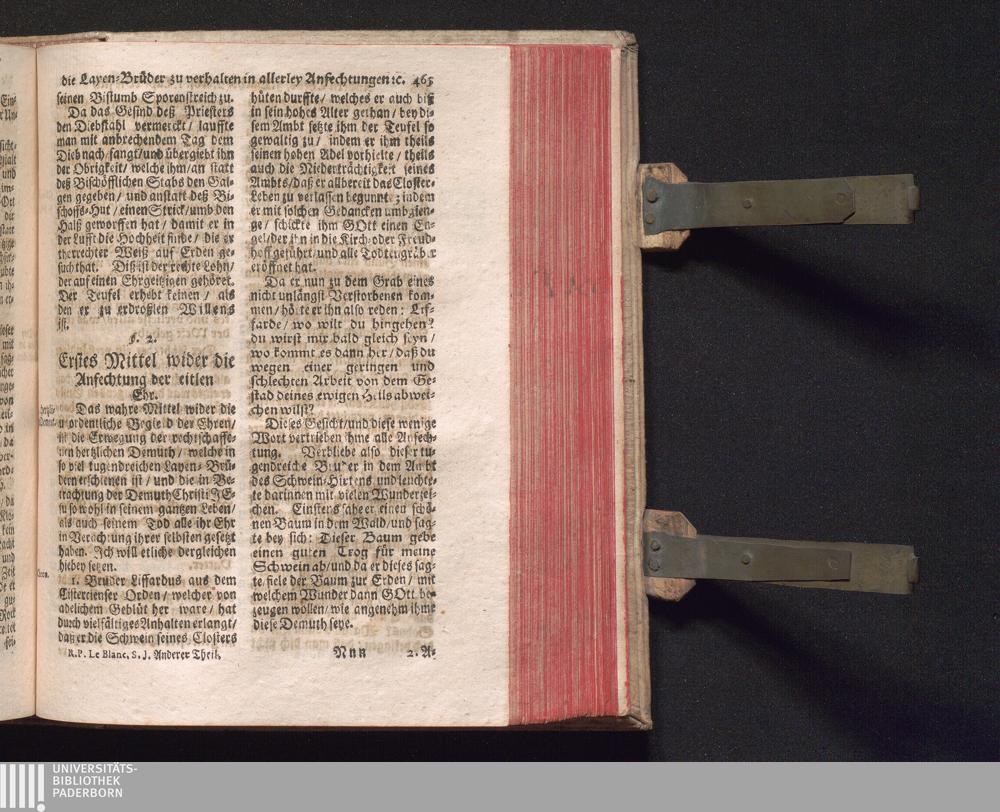 die Layen-Brüder zu verhalten in allerley Anfechtungen ꝛc. 465
seinen Bistumb Sporenstreich zu.
Da das Gesind deß Priesters
den Diebstahl vermerckt / lauffte
man mit anbrechendem Tag dem
Dieb nach / fangt / und übergiebt ihn
der Obrigkeit / welche ihm / an statt
deß Bischöfflichen Stabs den Gal-
gen gegeben / und anstatt deß Bi-
schoffs-Hut / einen Strick / umb den
Halß geworffen hat / damit er in
der Lufft die Hochheit finde / die er
therrechter Weiß auf Erden ge-
sucht hat. Diß ist der rechte Lohn /
der auf einen Ehrgeitzigen gehöret.
Der Teufel erhebt keinen / als
den er zu erdroßlen Willens
ist.
§. 2.
Erstes Mittel wider die
Anfechtung der eitlen
Ehr.
Das wahre Mittel wider die
unordentliche Begierd der Ehren /
ist die Erwegung der rechtschaffe-
nen hertzlichen Demuth / welche in
so viel tugendreichen Layen-Brü-
dern erschienen ist / und die in Be-
trachtung der Demuth Christi JE-
su so wohl in seinem gantzen Leben /
als auch seinem Tod alle ihr Ehr
in Verachtung ihrer selbsten gesetzt
haben. Ich will etliche dergleichen
hieben setzen.
1. Bruder Liffardus aus dem
Cistercienser Orden / welcher von
adelichem Geblüt her ware / hat
durch vielfältiges Anhalten erlangt /
daß er die Schwein seines Closters
R.P. Le Blanc, S. J. Anderer Theil.
hüten durffte / welches er auch biß
in sein hohes Alter gethan / bey di-
sem Ambt setzte ihm der Teufel so
gewaltig zu / indem er ihm theils
seinen hohen Adel vorhielte / theils
auch die Niederträchtigkeit seines
Ambts / daß er allbereit das Closter-
Leben zu verlassen begunnt; indem
er mit solchen Gedancken umbgien-
ge / schickte ihm GOtt einen En-
gel / der ihn in die Kirch- oder Freud-
hoff geführt / und alle Todtengräber
eröffnet hat.
Da er nun zu dem Grab eines
nicht unlängst Verstorbenen kom-
men / hörte er ihn also reden: Lif-
farde / wo wilt du hingehen?
du wirst mir bald gleich seyn /
wo kommt es dann her / daß du
wegen einer geringen und
schlechten Arbeit von dem Ge-
stad deines ewigen Heils abwei-
chen wilst?
Dieses Gesicht / und diese wenige
Wort vertrieben ihme alle Anfech-
tung. Verbliebe also dieser tu-
gendreiche Bruder in dem Ambt
des Schwein-Hirtens und leuchte-
te darinnen mit vielen Wunderzei-
chen. Einsters sahe er einen schö-
nen Baum in dem Wald / und sag-
te bey sich: Dieser Baum gebe
einen guten Trog für meine
Schwein ab / und da er dieses sag-
te, fiele der Baum zur Erden / mit
welchem Wunder dann GOtt be-
zeugen wollen / wie angenehm ihme
diese Demuth seye.
Nnn 2. A-
UNIVERSITÄTS-
BIBLIOTHEK
PADERBORN